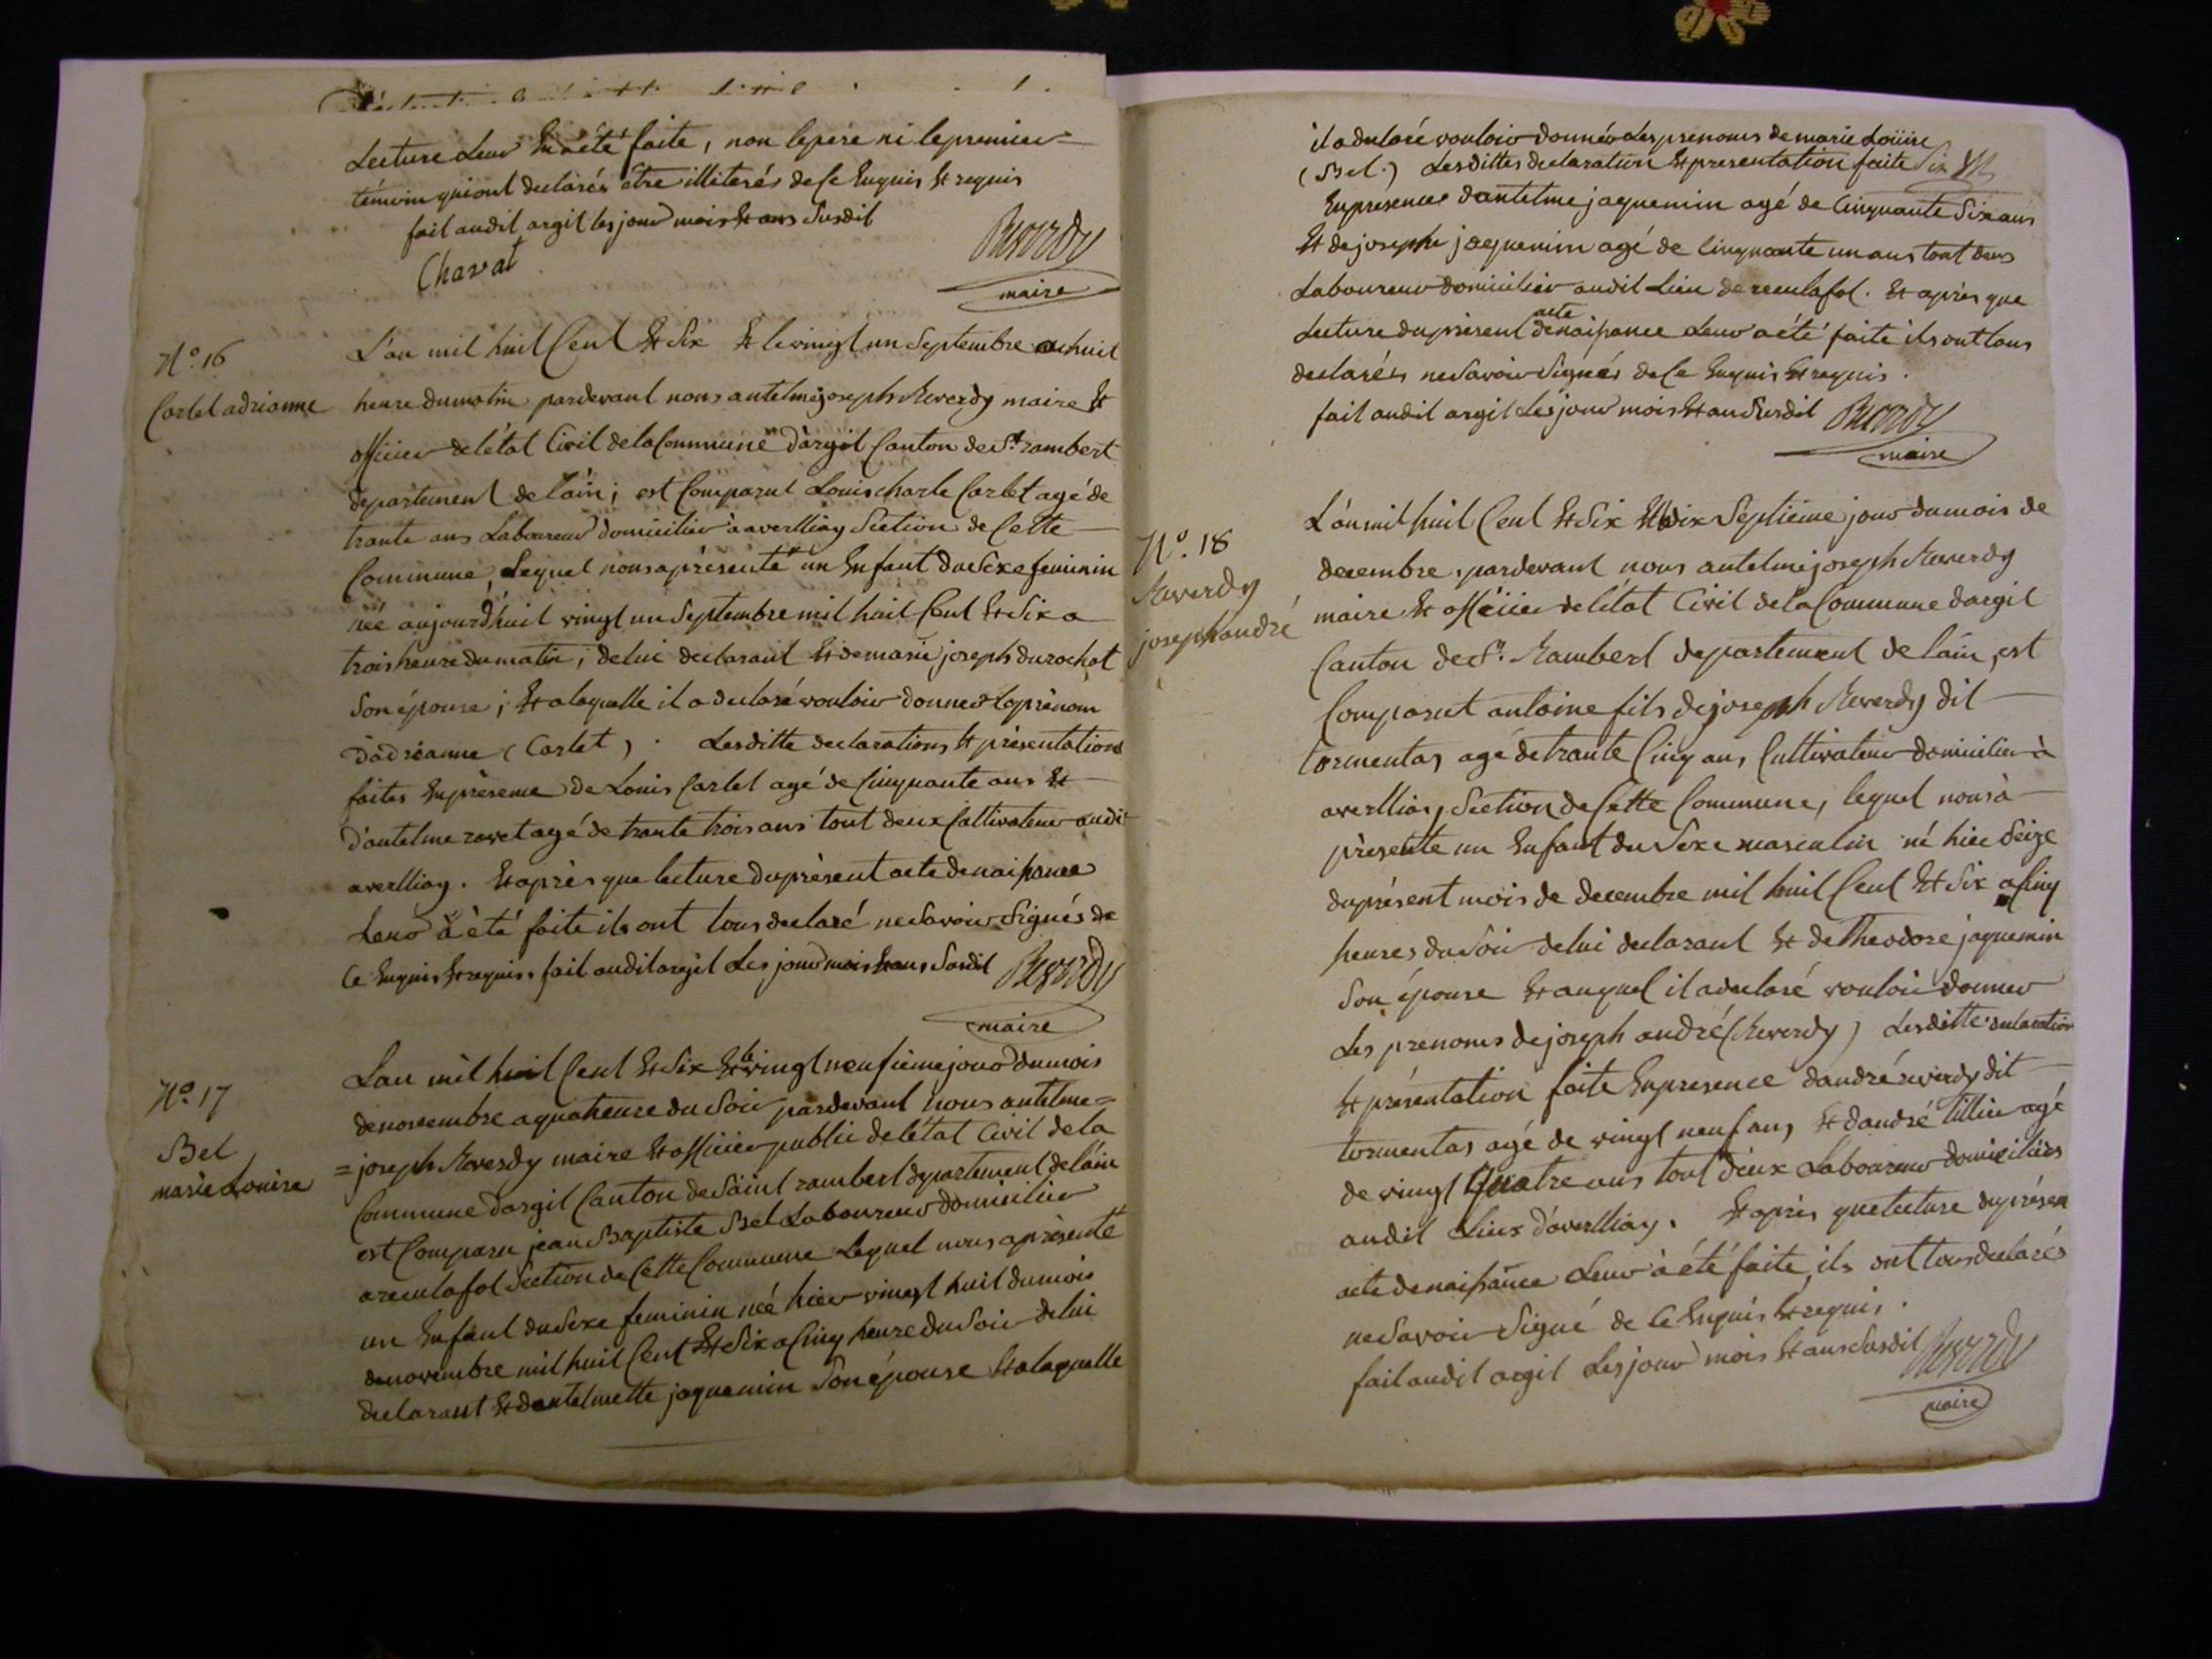 Lecture Leur En a été faite, non lepere ni lepremier
témoin quiont declarés être illiterés dele Enquis Et requis
fait audit argit les jour mois Et ans Susdit
Chavat
Reverdy
maire
N.o 16
Carlet adrianne
L'an mil huit Cent Et Six Et levingt un Septembre a huit
heure dumatin pardevant nous antelmejoseph Reverdy maire Et
officier delétat Civil delaCommune d'argit Canton de St. rambert
departement delain; est Comparut Louis charle Carlet agé de
trante ans Laboureur domicilier à averlliay Section de Cette
Commune, Lequel nousaprésenté un Enfant du Sexe feminin
née aujourd'huit vingt un Septembre mil huit Cent Et Six a
trois heure dumatin; delui declarant Et demarie joseph durochat
Son épouse; Et alaquelle il a declaré vouloir donner leprénom
d'adréanne (Carlet). Lesditte declarations Et présentations
faites Enprésence de Louis Carlet agé de Cinquante ans Et
d'antelme ravet agé de trante trois ans tout deux Cultivateur audit
averlliay. Et après que lecture duprésent acte denaissance
Leur à été faite ils ont tous declaré nesavoir Signés de
Ce Enquis Et requis. fait audit argit Les jour mois Et ans Susdit
Reverdy
maire
N.o 17
Bel
marie Louise
Lan mil huit Cent Et Six Et le vingt neufieme jour dumois
denovembre a quatreure du Soir pardevant nous antelme=
=joseph Reverdy maire Et officier public delétat Civil dela
Commune d'argit Canton de Saint rambert departement delain
est Comparu jean Baptiste Bel Laboureur domicilier
areculafol Section de Cette Commune Lequel nous aprésenté
un Enfant du Sexe feminin née hier vingt huit dumois
denovembre mil huit Cent Et Six a Cinq heure du Soir delui
declarant Et dantelmette jaquemin Son épouse Et alaquelle
il a declaré vouloir donnér Les prenoms de marie Loüise
(Bel.) Lesdittes declaration Et presentation faite
Enpresence dantelme jaquemin agé de Cinquante Six ans
Et dejoseph jaquemin agé de Cinquante un ans tout deux
Laboureur domicilier audit Lieu de reculafol. Et après que
Lecture duprésent acte denaissance Leur a été faite ils ont tous
declarés ne Savoir Signés de Ce Enquis Et requis.
fait audit argit Les jour mois Et an Susdit
Reverdy
maire
N.o 18
Reverdy
joseph andré
L'an mil huit Cent Et Six Et le dix Séptieme jour dumois de
decembre, pardevant nous antelmejoseph Reverdy
maire Et officier delétat Civil dela Commune dargit
Canton de St. Rambert departement de lain, est
Comparut antoine fils dejoseph Reverdy dit
tormentas agé de trante Cinq ans Cultivateur domicilier à
averlliay Section de Cette Commune, lequel nous à
présente un Enfant du Sexe masculin né hier Seize
duprésent mois de decembre mil huit Cent Et Six a Cinq
heures du Soir delui declarant Et de Theodore jaquemin
Son épouse Et auquel il a declaré vouloir donner
Les prenoms dejoseph andré (Reverdy) Lesditte declaration
Et présentation faite Enpresence dandré reverdy dit
tormentas agé de vingt neuf ans Et dandré tillier agé
de vingt quatre ans tout deux Laboureur domiciliers
audit Lieux d'averlliay. Et après que lecture duprésen
acte denaissance Leur à été faite, ils ont tous declarés
nesavoir Signé de Ce Enquis Et requis.
fait audit argit Les jour mois Et ans Susdit
Reverdy
maire